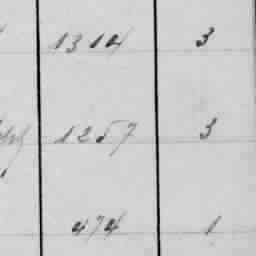 1314 3
1257 3
474 1